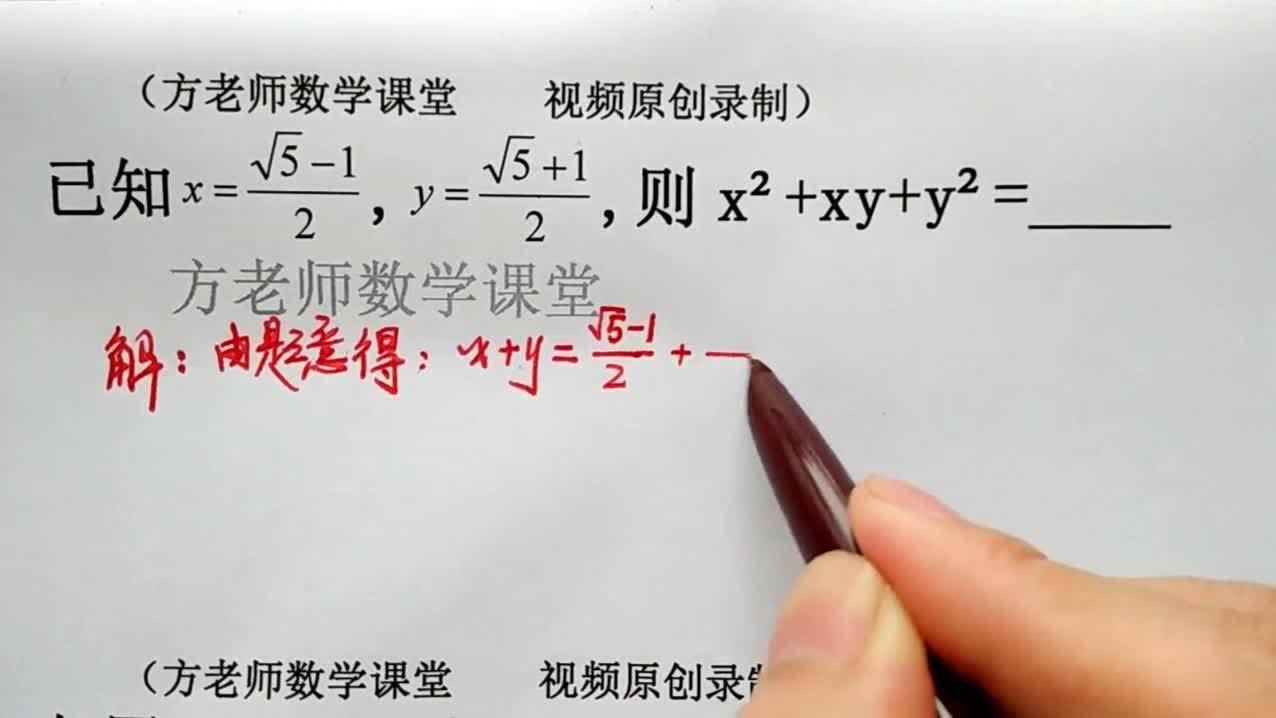 （方老师数学课堂 视频原创录制）
已知 x = (√5 − 1)/2 , y = (√5 + 1)/2 , 则 x² +xy+y² =_____
方老师数学课堂
解：由题意得：x+y = (√5-1)/2 + —
（方老师数学课堂 视频原创录